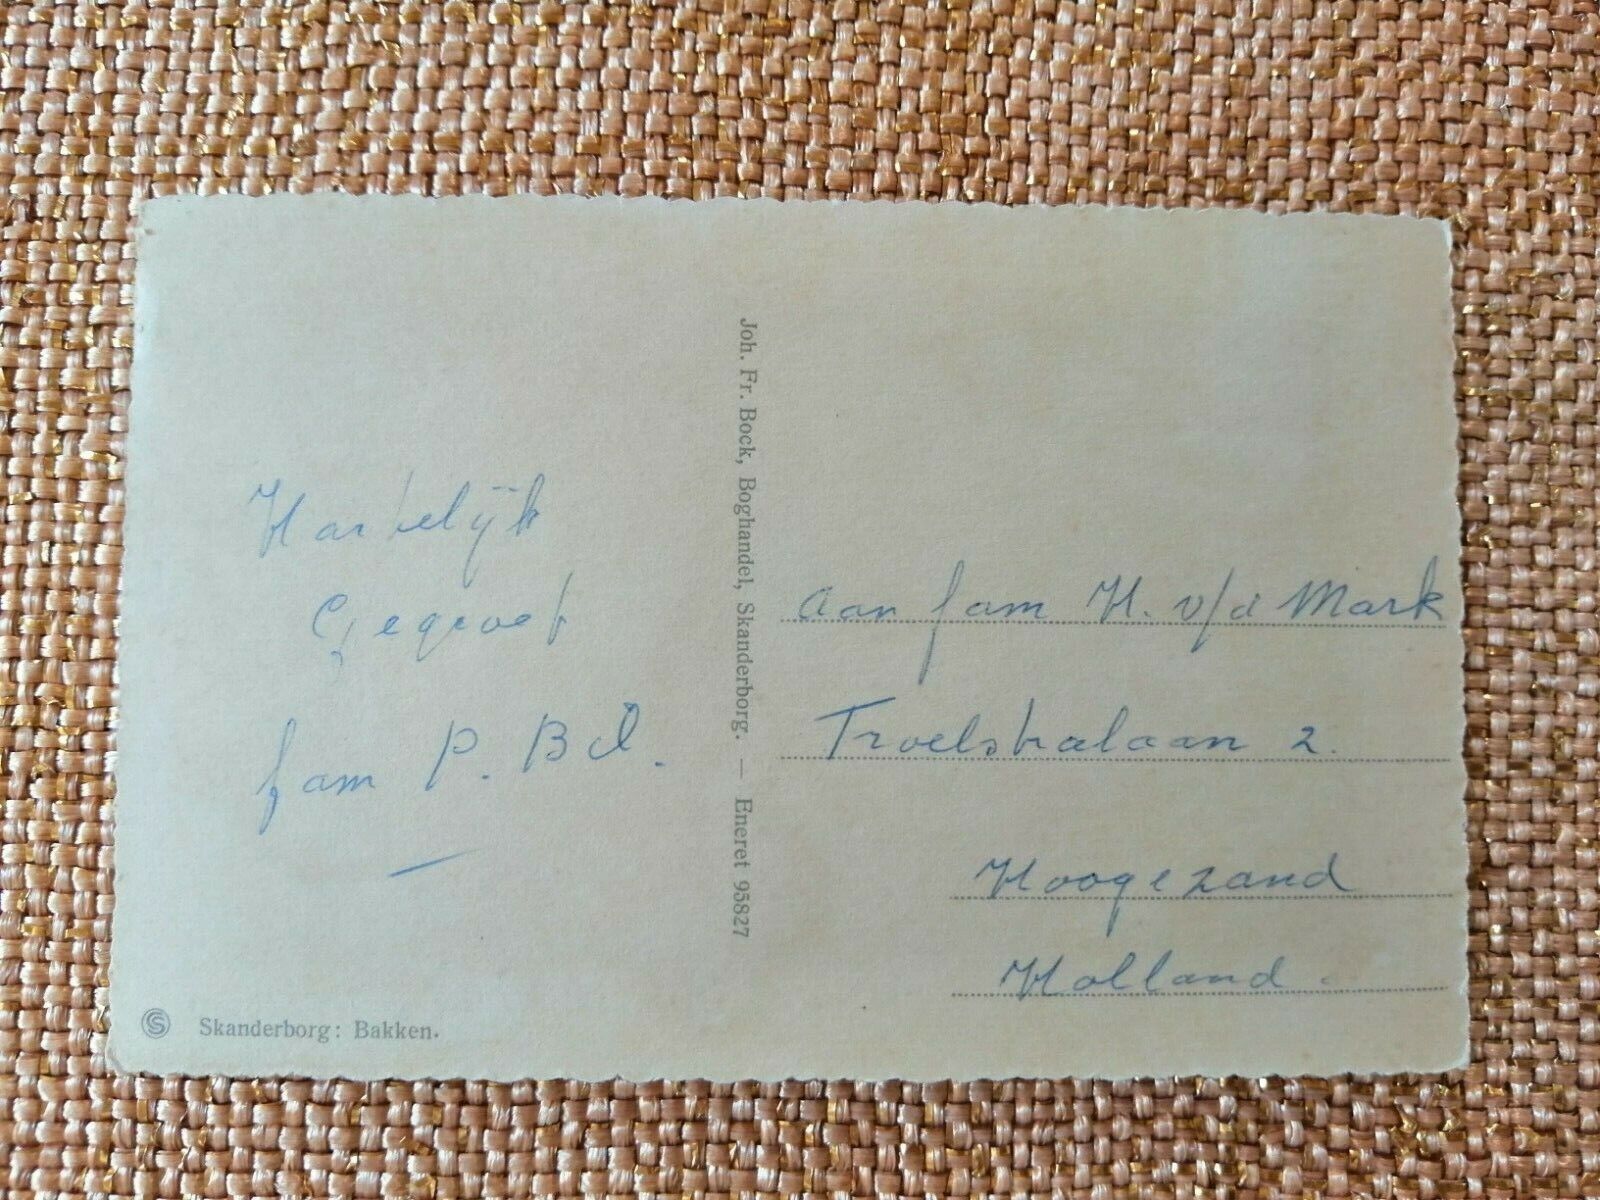 Hartelijk
Gegroet
fam P. Bol.
Skanderborg: Bakken.
Joh. Fr. Bock, Boghandel, Skanderborg. — Eneret 95827
Aan fam H. v/d Mark
Troelstralaan 2.
Hoogezand
Holland.